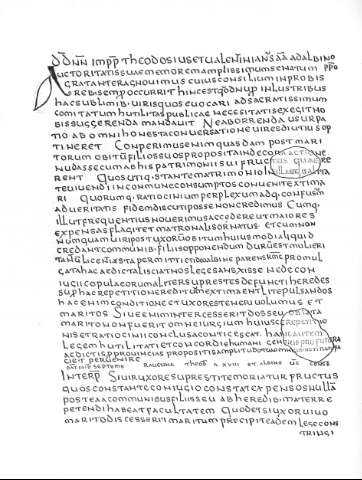 D̄D̄ N̄N̄ IMPP̄ THEODOSIUS ET UALENTINIANUS ĀĀ ADALBINO
AUCTORITATIS SUAE MEMOREM AMPLISSIMUM SENATUM PPO
GRATANTER AGNOUIMUS CUIUS CONSILIUM IN PROBIS
REB· SEMP OCCURRIT HINC EST QD NUP INLUSTRIBUS
HAC SUBLIMIB· UIRIS QUOS EUOCARI AD SACRATISSIMUM
COMITATUM HUTILITAS PUBLICAE NECESSITATIS EXEGIT HO
BIS SUGGERENDA MANDAUIT NE ABORRENDA USURPA
TIO AB OMNI HONESTA CONUERSATIONE UIRES DIUTIUS OP
TINERET CONPERIMUS ENIM QUASDAM POST MARI
TORUM OBITU FILIOS SUOS PROPOSITA INDECORA ACTIONE
NUDASSE CUM AB HIS PATRIMONII SUI FRUCTUS QUAERE
RENT QUOS UTIQ· STANTE MATRIMONIO
TE UIUENDI IN COMMUNE CONSUMPTOS CONUENIT EXTIMA
RI QUORUMQ· RATIOCINIUM PERPLEXUM ADQ· CONFUSŪ
AD UERITATIS FIDEM DISCUTI POSSE NON CREDIMUS CUMQ·
ILLUT FREQUENTIUS NOUERIMUS ACCEDERE UT MAIORES
EXPENSAS FLAGITET MATRONALIS ORNATUS ET CUM NON
NUMQUAM URI POST UXORŪ OBITUM HUIUSMODI ALIQUID
CREDANT COMMUNIB· FILIIS OPPONENDUM DURUM EST MULIERI
LICENTIA PERMITTI
GATA HAC EDICTALI SCIAT NOS LEGE SANXISSE NE DE CON
IUGII COPULA CORUM ALTER SUPRESTES DEFUNCTI HEREDES
SUP HAC REPETITIONE REDITUŪ EXTIMAET LITE PULSANDOS
HAC ENIM CONDITIONE ET UXORES TENERI UOLUMUS ET
MARITOS SIUE ENIM INTERCESSERIT DOS SEU OBLATA
MARITO NON FUERIT OMNE IURGIUM HUIUSCE REPETITIO
NIS ET RATIOCINII CONCLUSA CONTICESCAT HAC AUTEM
LEGEM HUTILITATI ET CONCORDIE HUMANI GENERIS PROFUTURA
AEDICTIS P PROUINCIAS PROPOSITIS
CIET PERUENIRE
INTERP̄ SIUIR UXORE SUPRESTITE MORIATUR FRUCTUS
QUOS CONSTANTE CONIUGIO CONSTAT EXPENSOS NULLĀ
POSTEA A COMMUNIBUS FILIIS SEU AB HEREDIB· MATER RE
PETENDI HABEAT FACULTATEM QUOD ET SI UXOR UIUO
MARITO DISCESSERIT MARITUM PRECIPIT EADEM LEGE CONS
TRINGI